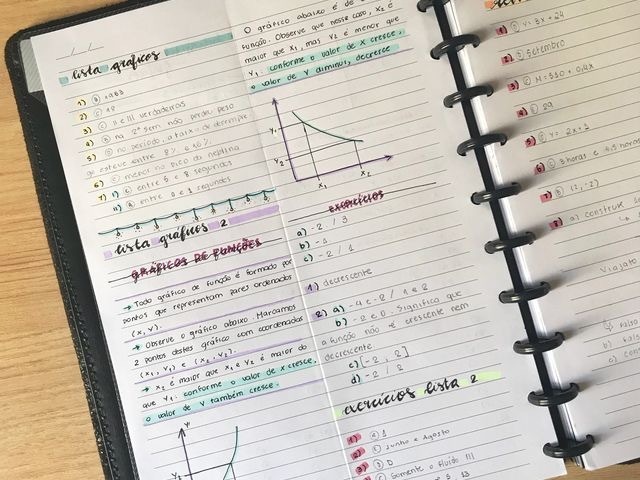 lista gráficos
1) B) 1963
2) C) 18
3) C) II e III verdadeiras
4) B) na 2ª sem não perdeu peso
5) D) no período, a taxa de desempre
go esteve entre 8% e 16%
6) C) menor no pico da neblina
7) I) C) entre 6 e 8 segundos
II) A) entre 0 e 1 segundos
lista gráficos 2
GRÁFICOS DE FUNÇÕES
→ Todo gráfico de função é formado por
pontos que representam pares ordenados
(x, y).
→ Observe o gráfico abaixo. Marcamos
2 pontos destes gráfico com coordenadas
(x₁, y₁) e (x₂, y₂).
→ x₂ é maior do que x₁ e y₂ é maior do
que y₁: conforme o valor de x cresce,
o valor de y também cresce.
y
y₂
O gráfico abaixo é de
função. Observe que nesse caso, x₂ é
maior que x₁, mas y₂ é menor que
y₁: conforme o valor de x cresce,
o valor de y diminui, decresce
y₁
y₂
x₁ x₂
EXERCÍCIOS
a) -2 / 3
b) -1
c) -2 / 1
1) decrescente
2) a) -4 e -2 / 1 e 2
b) -2 e 0. Significa que
a função não é crescente nem
decrescente
c) [-2, 2]
d) -2 / 2
exercícios lista 2
1) A) 1
2) C) junho e Agosto
3) D) D
C) somente o fluido III
1) C) y = 3x + 24
2) D) Setembro
3) C) M = 550 + 0,4x
4) C) 29
5) C) y = 2x + 1
6) B) 3 horas e 4,5 horas
7) B) (2, -2)
8) a) construir
Viajato
falso
b) fals
c) cons